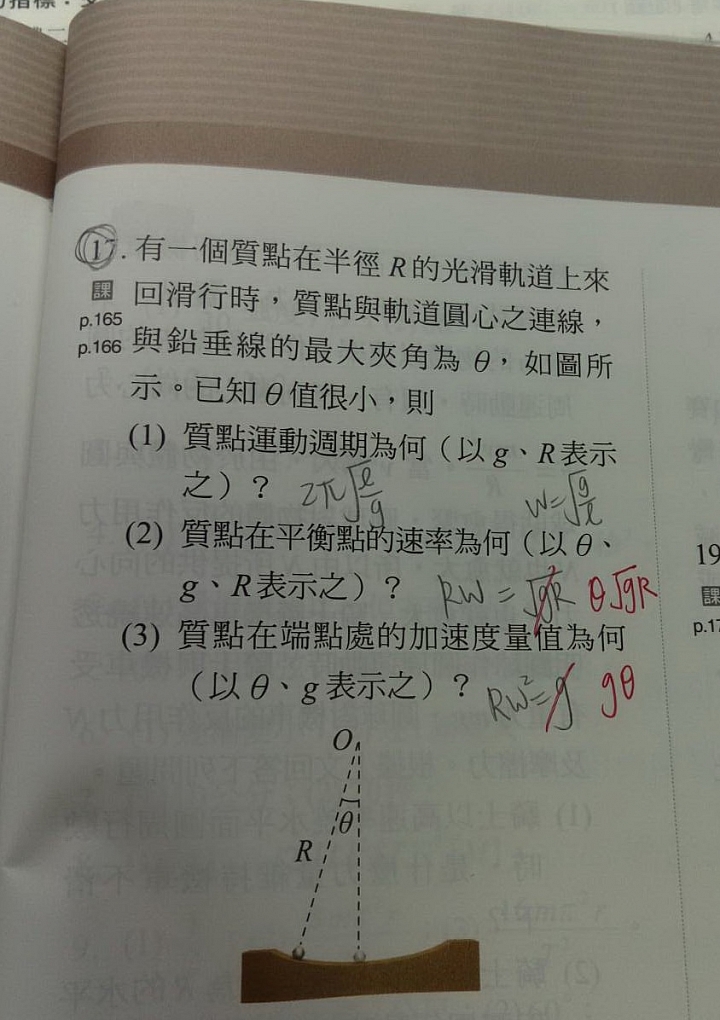 17. 有一個質點在半徑 R 的光滑軌道上來
課 回滑行時，質點與軌道圓心之連線，
p.165
p.166 與鉛垂線的最大夾角為 θ，如圖所
示。已知 θ 值很小，則
(1) 質點運動週期為何（以 g、R 表示
之）？ 2π√(ℓ/g) W=√(g/ℓ)
(2) 質點在平衡點的速率為何（以 θ、
g、R 表示之）？ RW = √gR θ√gR
(3) 質點在端點處的加速度量值為何
（以 θ、g 表示之）？ RW²=g gθ
O
θ
R
19
課
p.17